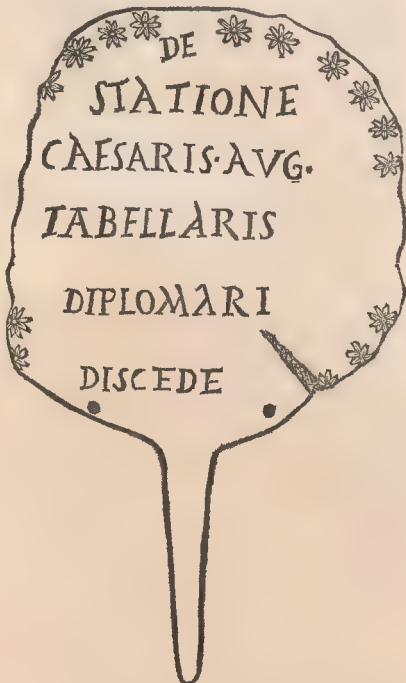 DE
STATIONE
CAESARIS·AVG.
TABELLARIS
DIPLOMARI
DISCEDE